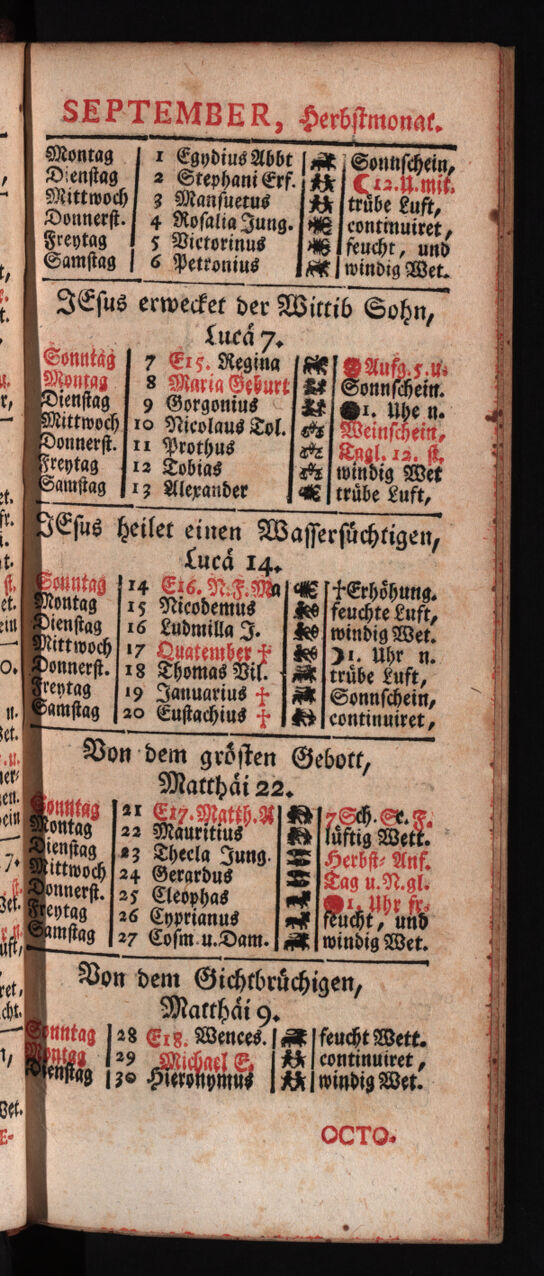 SEPTEMBER, Herbstmonat.
Montag 1 Egydius Abbt Sonnschein,
Dienstag 2 Stephani Erf. ☾12.U.mit.
Mittwoch 3 Mansuetus trübe Luft,
Donnerst. 4 Rosalia Jung. continuiret,
Freytag 5 Victorinus feucht, und
Samstag 6 Petronius windig Wet.
JEsus erwecket der Wittib Sohn,
Lucä 7.
Sonntag 7 E15. Regina Aufg.5.u.
Montag 8 Maria Geburt Sonnschein.
Dienstag 9 Gorgonius ●1. Uhe n.
Mittwoch 10 Nicolaus Tol. Weinschein,
Donnerst. 11 Prothus Tagl. 12. st.
Freytag 12 Tobias windig Wet
Samstag 13 Alexander trübe Luft,
JEsus heilet einen Wassersüchtigen,
Lucä 14.
Sonntag 14 E16. N.F.Ma ☩Erhöhung.
Montag 15 Nicodemus feuchte Luft,
Dienstag 16 Ludmilla J. windig Wet.
Mittwoch 17 Quatember ☩ ☽1. Uhr n.
Donnerst. 18 Thomas Vil. trübe Luft,
Freytag 19 Januarius ☩ Sonnschein,
Samstag 20 Eustachius ☩ continuiret,
Von dem grösten Gebott,
Matthäi 22.
Sonntag 21 E17. Matth. A 7 Sch. Sc. F.
Montag 22 Mauritius lüftig Wett.
Dienstag 23 Thecla Jung. Herbst- Anf.
Mittwoch 24 Gerardus Tag u.N.gl.
Donnerst. 25 Cleophas ●1. Uhr fr.
Freytag 26 Cyprianus feucht, und
Samstag 27 Cosm. u. Dam. windig Wet.
Von dem Gichtbrüchigen,
Matthäi 9.
Sonntag 28 E18. Wences. feucht Wett.
Montag 29 Michael E. continuiret,
Dienstag 30 Hieronymus windig Wet.
OCTO-